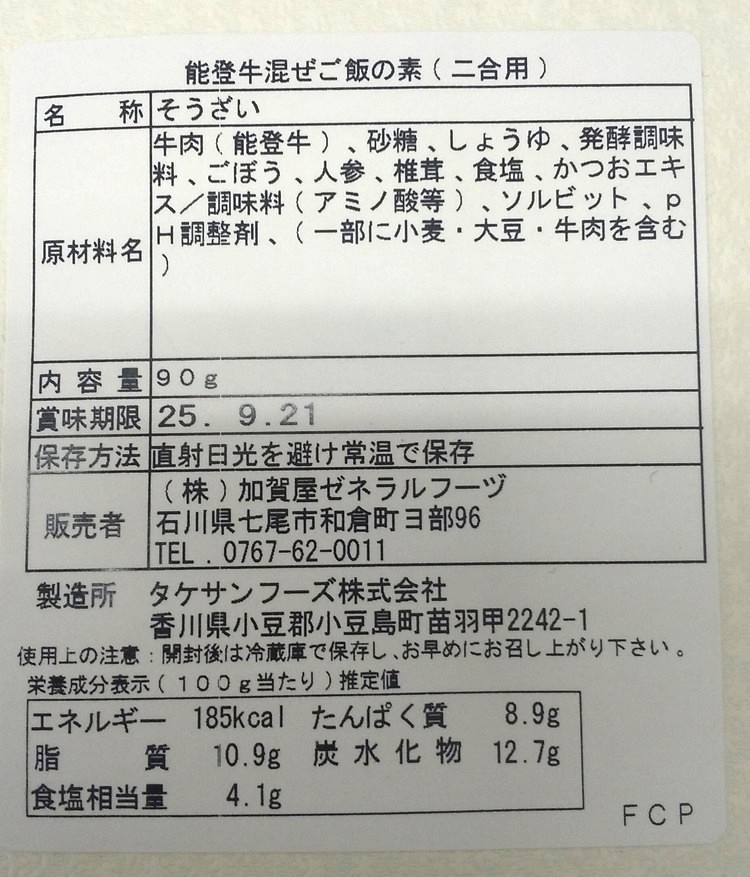 能登牛混ぜご飯の素(二合用)
名 称 そうざい
原材料名 牛肉(能登牛)、砂糖、しょうゆ、発酵調味
料、ごぼう、人参、椎茸、食塩、かつおエキ
ス/調味料(アミノ酸等)、ソルビット、p
H調整剤、(一部に小麦・大豆・牛肉を含む
)
内容量 90g
賞味期限 25. 9.21
保存方法 直射日光を避け常温で保存
販売者 (株)加賀屋ゼネラルフーヅ
石川県七尾市和倉町ヨ部96
TEL.0767-62-0011
製造所 タケサンフーズ株式会社
香川県小豆郡小豆島町苗羽甲2242-1
使用上の注意:開封後は冷蔵庫で保存し、お早めにお召し上がり下さい。
栄養成分表示(100g当たり)推定値
エネルギー 185kcal たんぱく質 8.9g
脂質 10.9g 炭水化物 12.7g
食塩相当量 4.1g
FCP